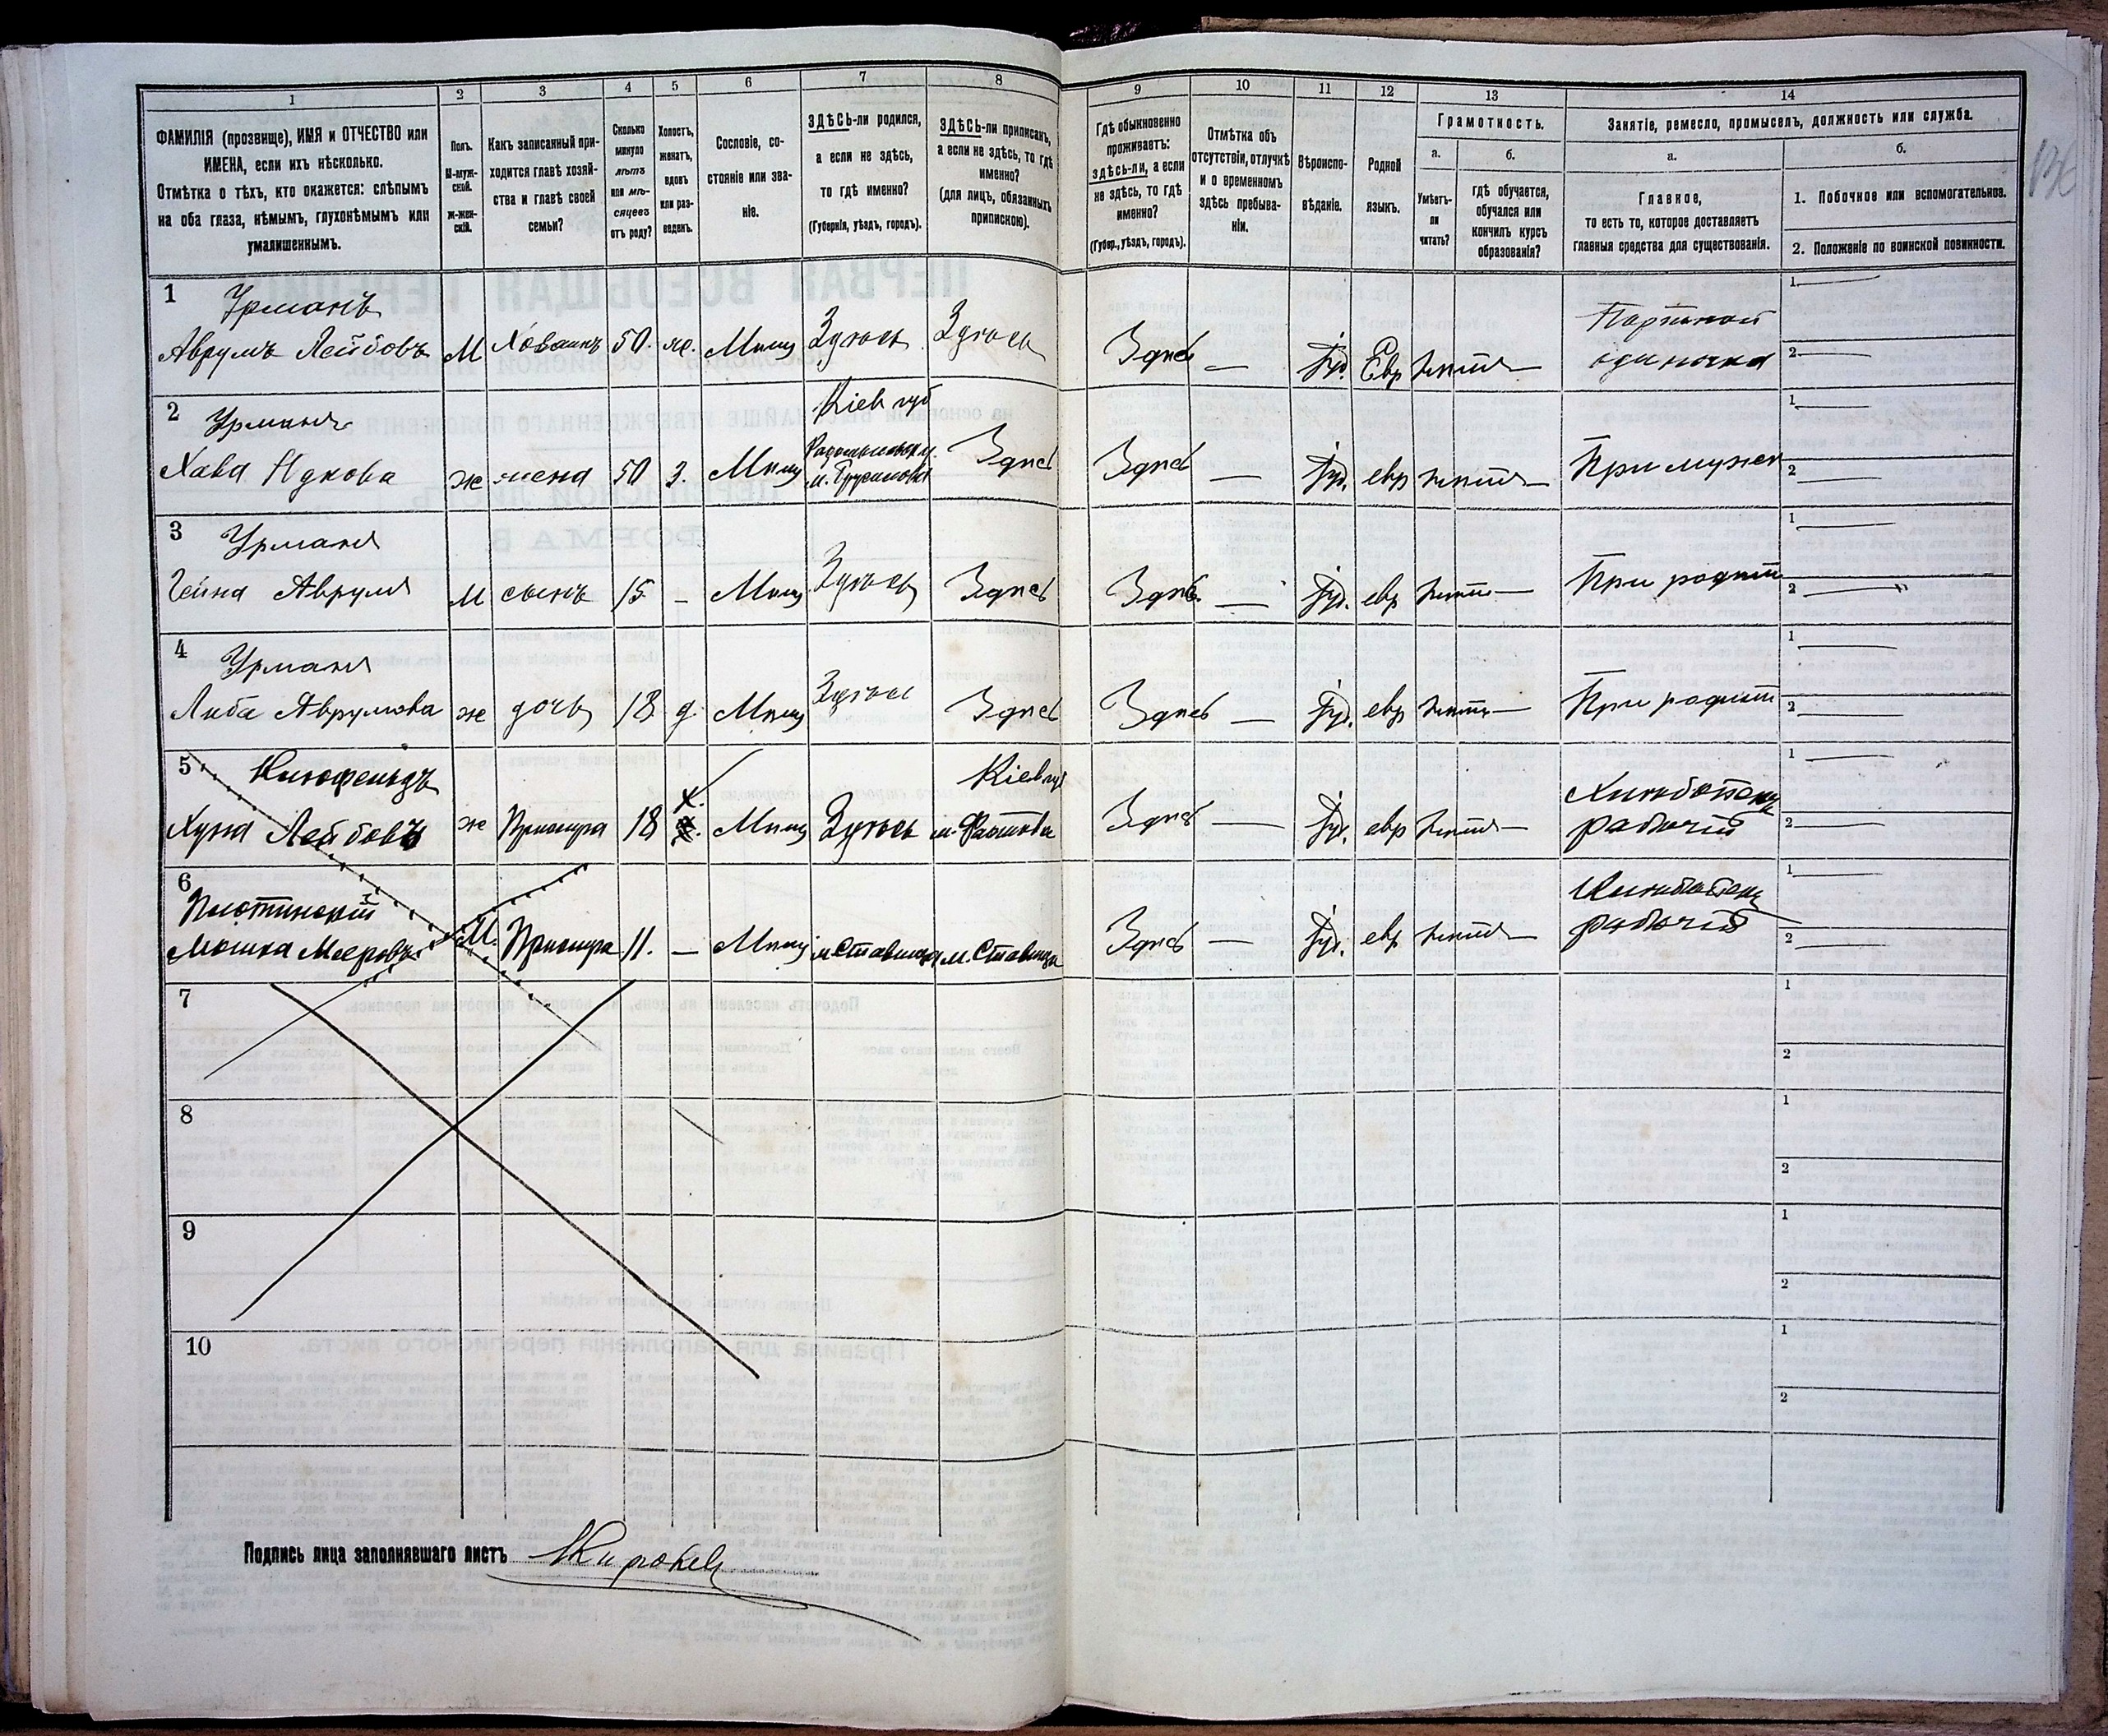 1
2
3
4
5
6
7
8
9
10
11
12
13
14
ФАМИЛІЯ (прозвище), ИМЯ и ОТЧЕСТВО или
ИМЕНА, если ихъ нѣсколько.
Отмѣтка о тѣхъ, кто окажется: слѣпымъ
на оба глаза, нѣмымъ, глухонѣмымъ или
умалишеннымъ.
Полъ.
М-муж-
ской.
Ж-жен-
скій.
Какъ записанный при-
ходится главѣ хозяй-
ства и главѣ своей
семьи?
Сколько
минуло
лѣтъ
или мѣ-
сяцевъ
отъ роду?
Холостъ,
женатъ,
вдовъ
или раз-
веденъ.
Сословіе, со-
стояніе или зва-
ніе.
ЗДѢСЬ-ли родился,
а если не здѣсь,
то гдѣ именно?
(Губернія, уѣздъ, городъ).
ЗДѢСЬ-ли приписанъ,
а если не здѣсь, то гдѣ
именно?
(для лицъ, обязанныхъ
припискою).
Гдѣ обыкновенно
проживаетъ:
здѣсь-ли, а если
не здѣсь, то гдѣ
именно?
(Губер., уѣздъ, городъ).
Отмѣтка объ
отсутствіи, отлучкѣ
и о временномъ
здѣсь пребыва-
ніи.
Вѣроиспо-
вѣданіе.
Родной
языкъ.
Грамотность.
а.
б.
Умѣетъ-
ли
читать?
гдѣ обучается,
обучался или
кончилъ курсъ
образованія?
Занятіе, ремесло, промыселъ, должность или служба.
а.
б.
Главное,
то есть то, которое доставляетъ
главныя средства для существованія.
1. Побочное или вспомогательное.
2. Положеніе по воинской повинности.
1 Урманъ
Аврумъ Лейбовъ М Хозяинъ 50. же. Мѣщ Здѣсь Здѣсь Здѣсь — Іуд. Евр — Портной
одиночка
1
2
2 Урманъ Кіев губ
Радомысльск у.
Хава ж жена 50 з. Мѣщ м. Брусиловъ Здѣсь Здѣсь — Іуд. евр — При мужѣ
1
2
3 Урманъ
Аврумъ М сынъ 15 — Мѣщ Здѣсь Здѣсь Здѣсь — Іуд. евр — При родит
1
2
4 Урманъ
Либа Аврумова ж дочь 18 д. Мѣщ Здѣсь Здѣсь Здѣсь — Іуд. евр — При родит
1
2
5 х. Кіев губ
Лейбовъ ж Прислуга 18 Мѣщ Здѣсь м. Фастовъ Здѣсь — Іуд. евр — рабочій
1
2
6
Мошка Мееровъ М. Прислуга 11. — Мѣщ м. Ставища м. Ставища Здѣсь — Іуд. евр — рабочій
1
2
7
1
2
8
1
2
9
1
2
10
1
2
Подпись лица заполнявшаго листъ